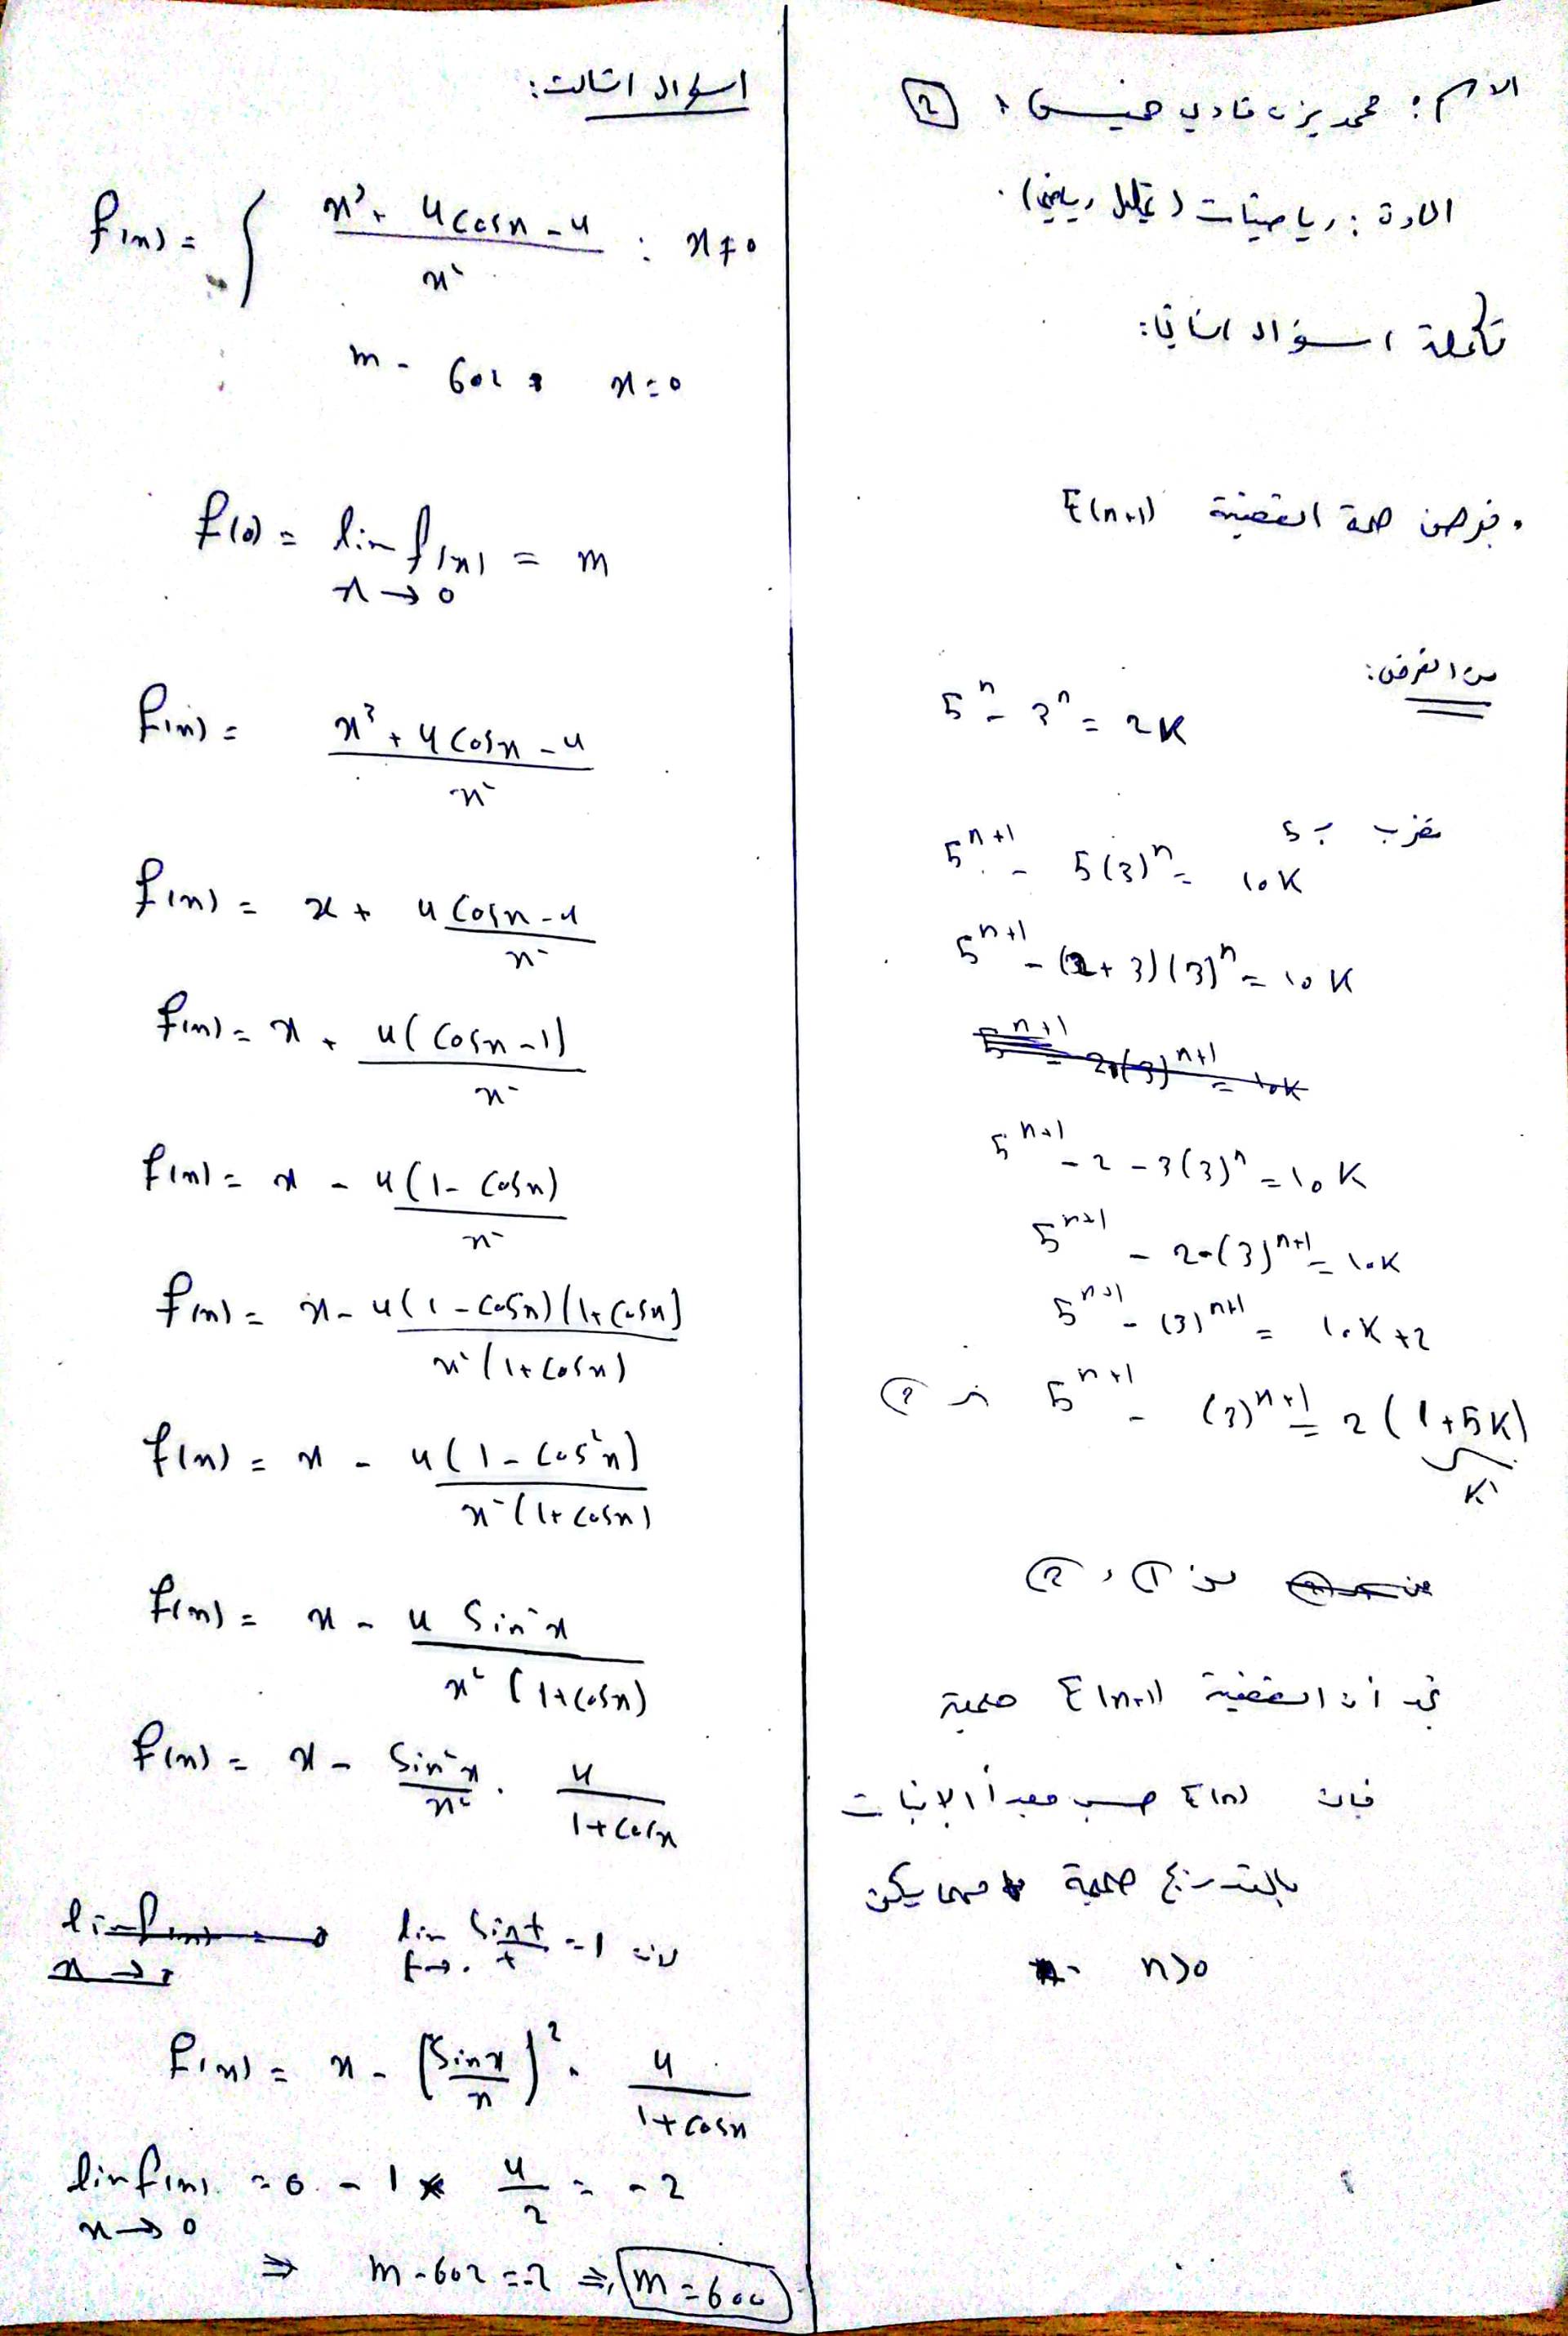 الاسم: محمد يزن فادي حنيس ②
المادة: رياضيات (تحليل رياضي).
تكملة السؤال الثاني:
نفرض صحة القضية E(n+1)
من الفرض:
5^n - 3^n = 2K
نضرب بـ 5
5^{n+1} - 5(3)^n = 10K
5^{n+1} - (2+3)(3)^n = 10K
5^{n+1} - 2·(3)^{n+1} = 10K
5^{n+1} - 2 - 3(3)^n = 10K
5^{n+1} - 2 - (3)^{n+1} = 10K
5^{n+1} - (3)^{n+1} = 10K + 2
5^{n+1} - (3)^{n+1} = 2(1+5K) ②
K'
من ① و ②
نجد أن القضية E(n+1) صحيحة
فإن E(n) حسب مبدأ الإثبات
بالتدريج صحيحة مهما يكن
n>0
السؤال الثالث:
f(x) = { (x³ + 4cosx - 4)/x² : x≠0
m - 602 : x=0
f(0) = lim f(x) = m
x→0
f(x) = (x³ + 4cosx - 4)/x²
f(x) = x + (4cosx - 4)/x²
f(x) = x + 4(cosx - 1)/x²
f(x) = x - 4(1 - cosx)/x²
f(x) = x - 4(1 - cosx)(1+cosx)/x²(1+cosx)
f(x) = x - 4(1 - cos²x)/x²(1+cosx)
f(x) = x - 4 sin²x/x²(1+cosx)
f(x) = x - sin²x/x² · 4/(1+cosx)
lim f(x) = lim sint/t = 1 لأن
x→0 t→0
f(x) = x - (sinx/x)² · 4/(1+cosx)
lim f(x) = 0 - 1 × 4/2 = -2
x→0
⇒ m - 602 = -2 ⇒ m = 600